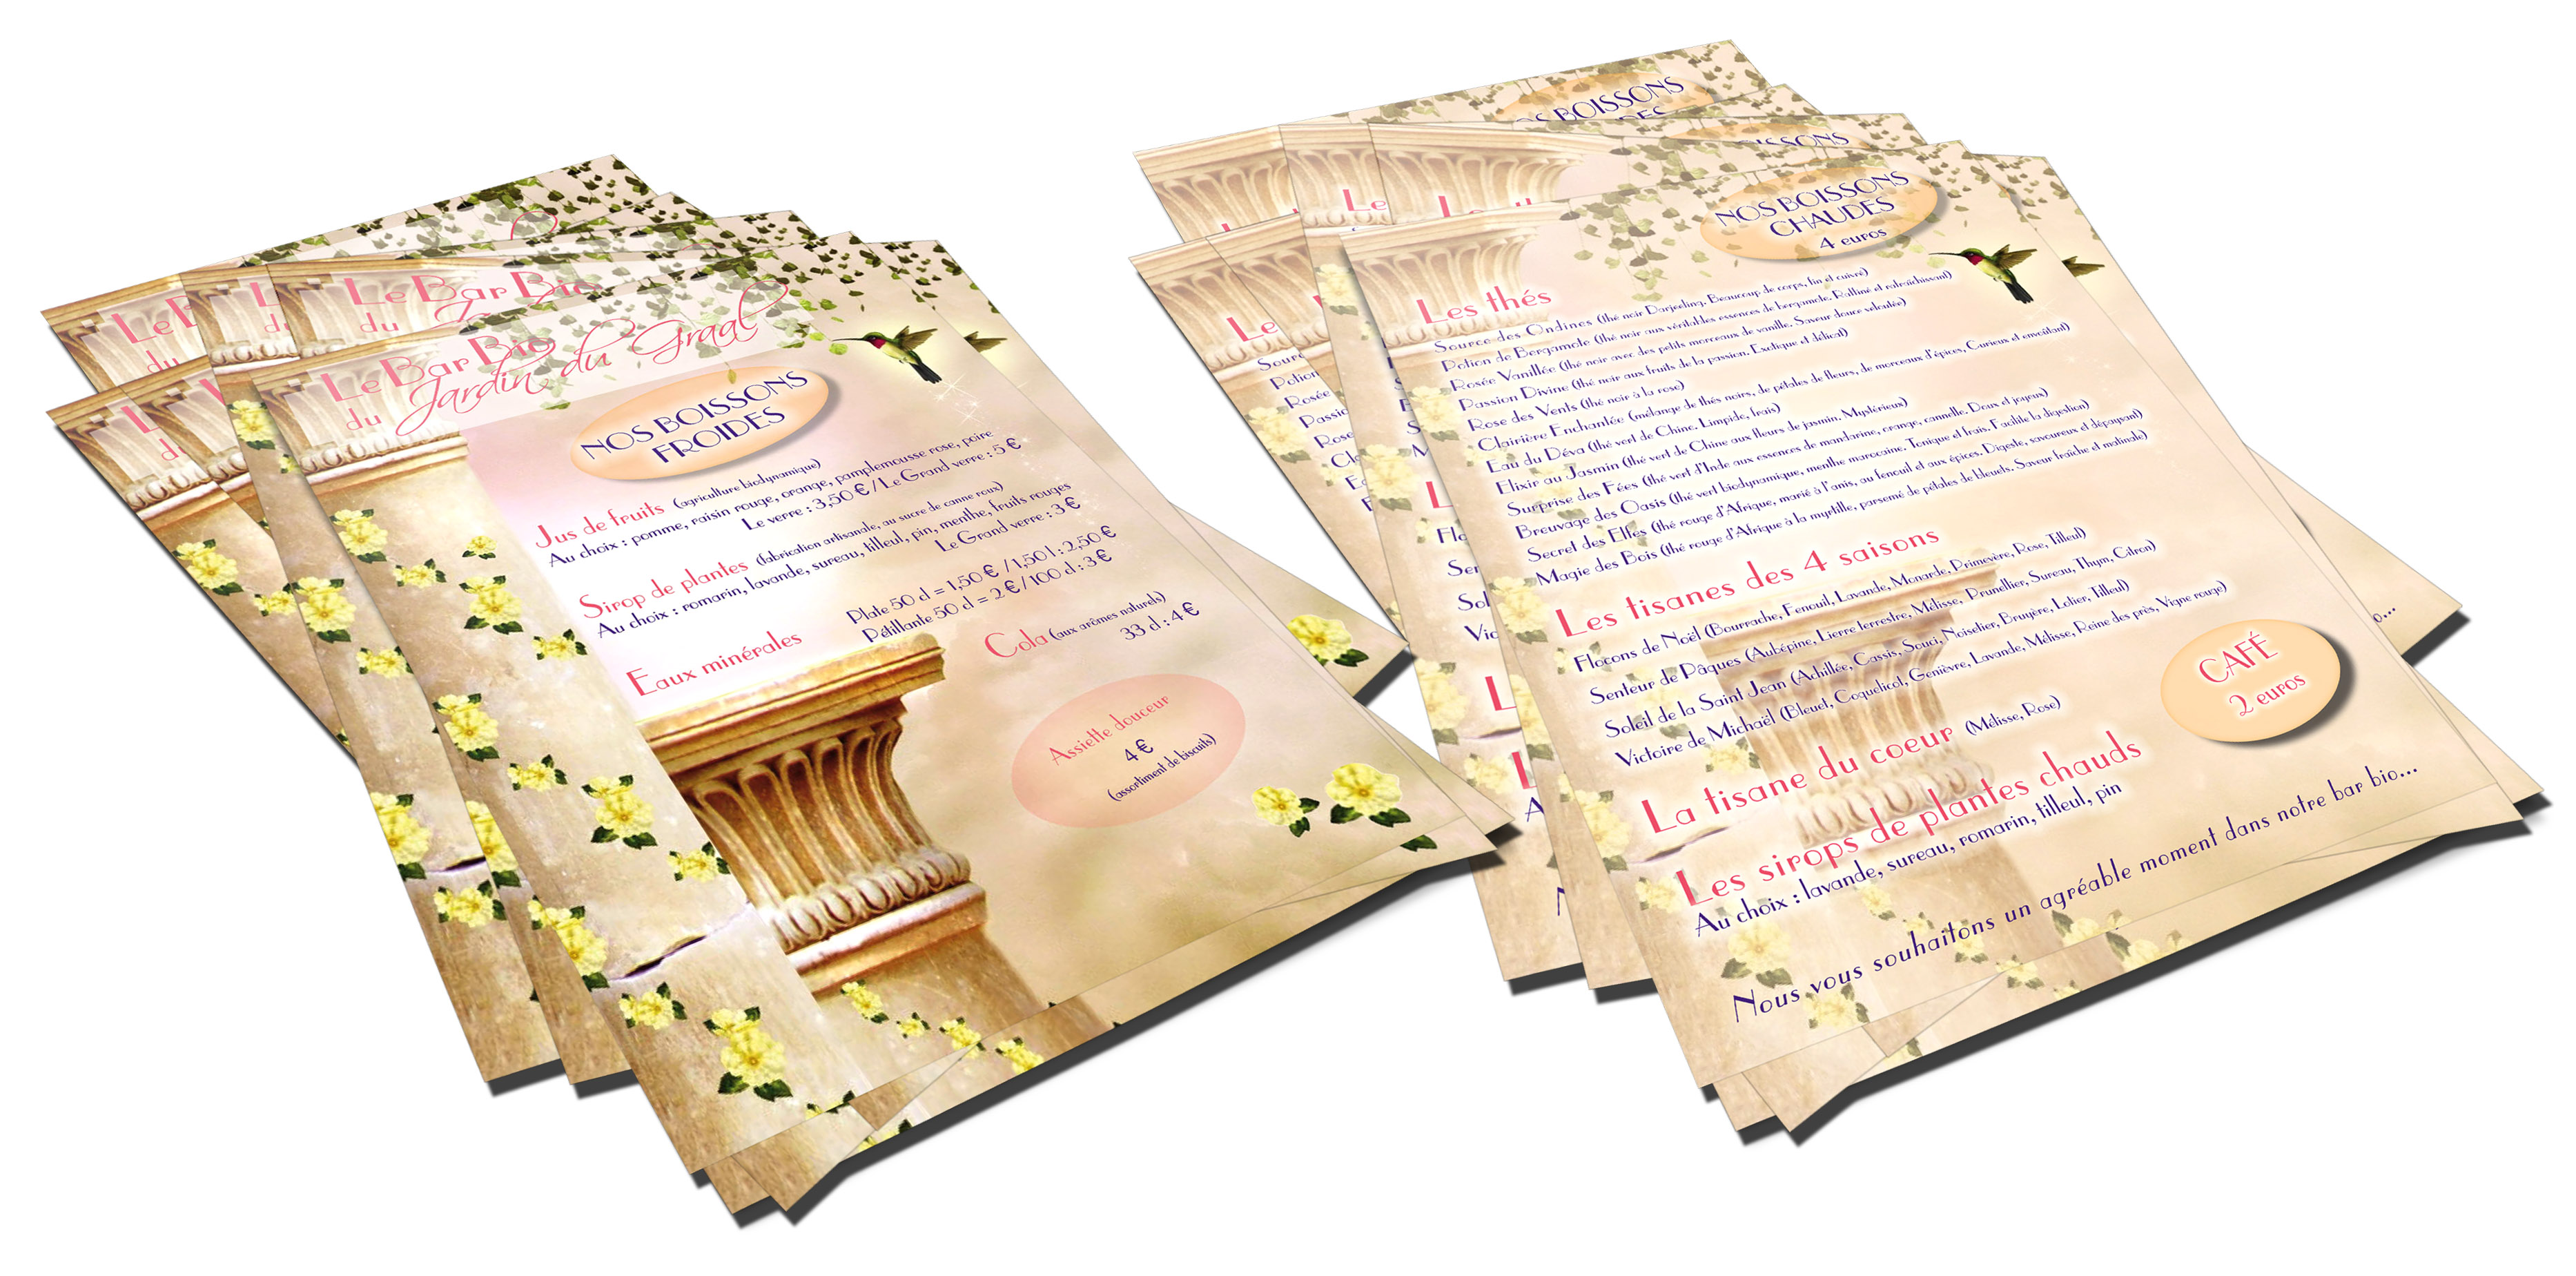 Le Bar Bio
du Jardin du Graal
NOS BOISSONS
FROIDES
Jus de fruits (agriculture biodynamique)
Au choix : pomme, raisin rouge, orange, pamplemousse rose, poire
Le verre : 3,50 € / Le Grand verre : 5 €
Sirop de plantes (fabrication artisanale, au sucre de canne roux)
Au choix : romarin, lavande, sureau, tilleul, pin, menthe, fruits rouges
Le Grand verre : 3 €
Eaux minérales
Plate 50 cl = 1,50 € / 1,50 l : 2,50 €
Pétillante 50 cl = 2 € / 100 cl : 3 €
Cola (aux arômes naturels)
33 cl : 4 €
Assiette douceur
4 €
(assortiment de biscuits)
NOS BOISSONS
CHAUDES
4 euros
Les thés
Source des Ondines (thé noir Darjeeling. Beaucoup de corps, fin et cuivré)
Potion de Bergamote (thé noir aux véritables essences de bergamote. Raffiné et rafraîchissant)
Rosée Vanillée (thé noir avec des petits morceaux de vanille. Saveur douce veloutée)
Passion Divine (thé noir aux fruits de la passion. Exotique et délicat)
Rose des Vents (thé noir à la rose)
Clairière Enchantée (mélange de thés noirs, de pétales de fleurs, de morceaux d'épices, Curieux et envoûtant)
Eau du Déva (thé vert de Chine. Limpide, frais)
Elixir au Jasmin (thé vert de Chine aux fleurs de jasmin. Mystérieux)
Surprise des Fées (thé vert d'Inde aux essences de mandarine, orange, cannelle. Doux et joyeux)
Breuvage des Oasis (thé vert biodynamique, menthe marocaine. Tonique et frais. Facilite la digestion)
Secret des Elfes (thé rouge d'Afrique, marié à l'anis, au fenouil et aux épices. Digeste, savoureux et dépaysant)
Magie des Bois (thé rouge d'Afrique à la myrtille, parsemé de pétales de bleuets. Saveur fraîche et matinale)
Les tisanes des 4 saisons
Flocons de Noël (Bourrache, Fenouil, Lavande, Monarde, Primevère, Rose, Tilleul)
Senteur de Pâques (Aubépine, Lierre terrestre, Mélisse, Prunellier, Sureau, Thym, Citron)
Soleil de la Saint Jean (Achillée, Cassis, Souci, Noisetier, Bruyère, Lotier, Tilleul)
Victoire de Michaël (Bleuet, Coquelicot, Genièvre, Lavande, Mélisse, Reine des près, Vigne rouge)
La tisane du coeur (Mélisse, Rose)
CAFÉ
2 euros
Les sirops de plantes chauds
Au choix : lavande, sureau, romarin, tilleul, pin
Nous vous souhaitons un agréable moment dans notre bar bio...